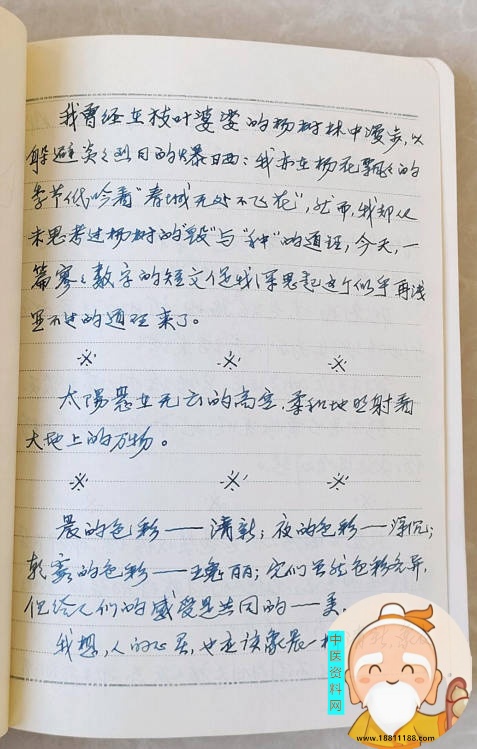 我曾经在枝叶婆娑的杨树林中漫步,以
躲避炎炎烈日的爆晒;我亦在杨花飘飘的
季节低吟着"春城无处不飞花",然而,我却从
未思考过杨树的"毁"与"种"的道理,今天,一
篇寥寥数字的短文促我深思起这个似乎再浅
显不过的道理来了。
※ ※ ※
太阳悬在无云的高空,柔和地照射着
大地上的万物。
※ ※ ※
晨的色彩——清新;夜的色彩——深沉;
朝霞的色彩——瑰丽;它们虽然色彩各异,
但给人们的感受是共同的——美。
我想,人的心灵,也应该象晨一样
中医资料网
www.18811188.com